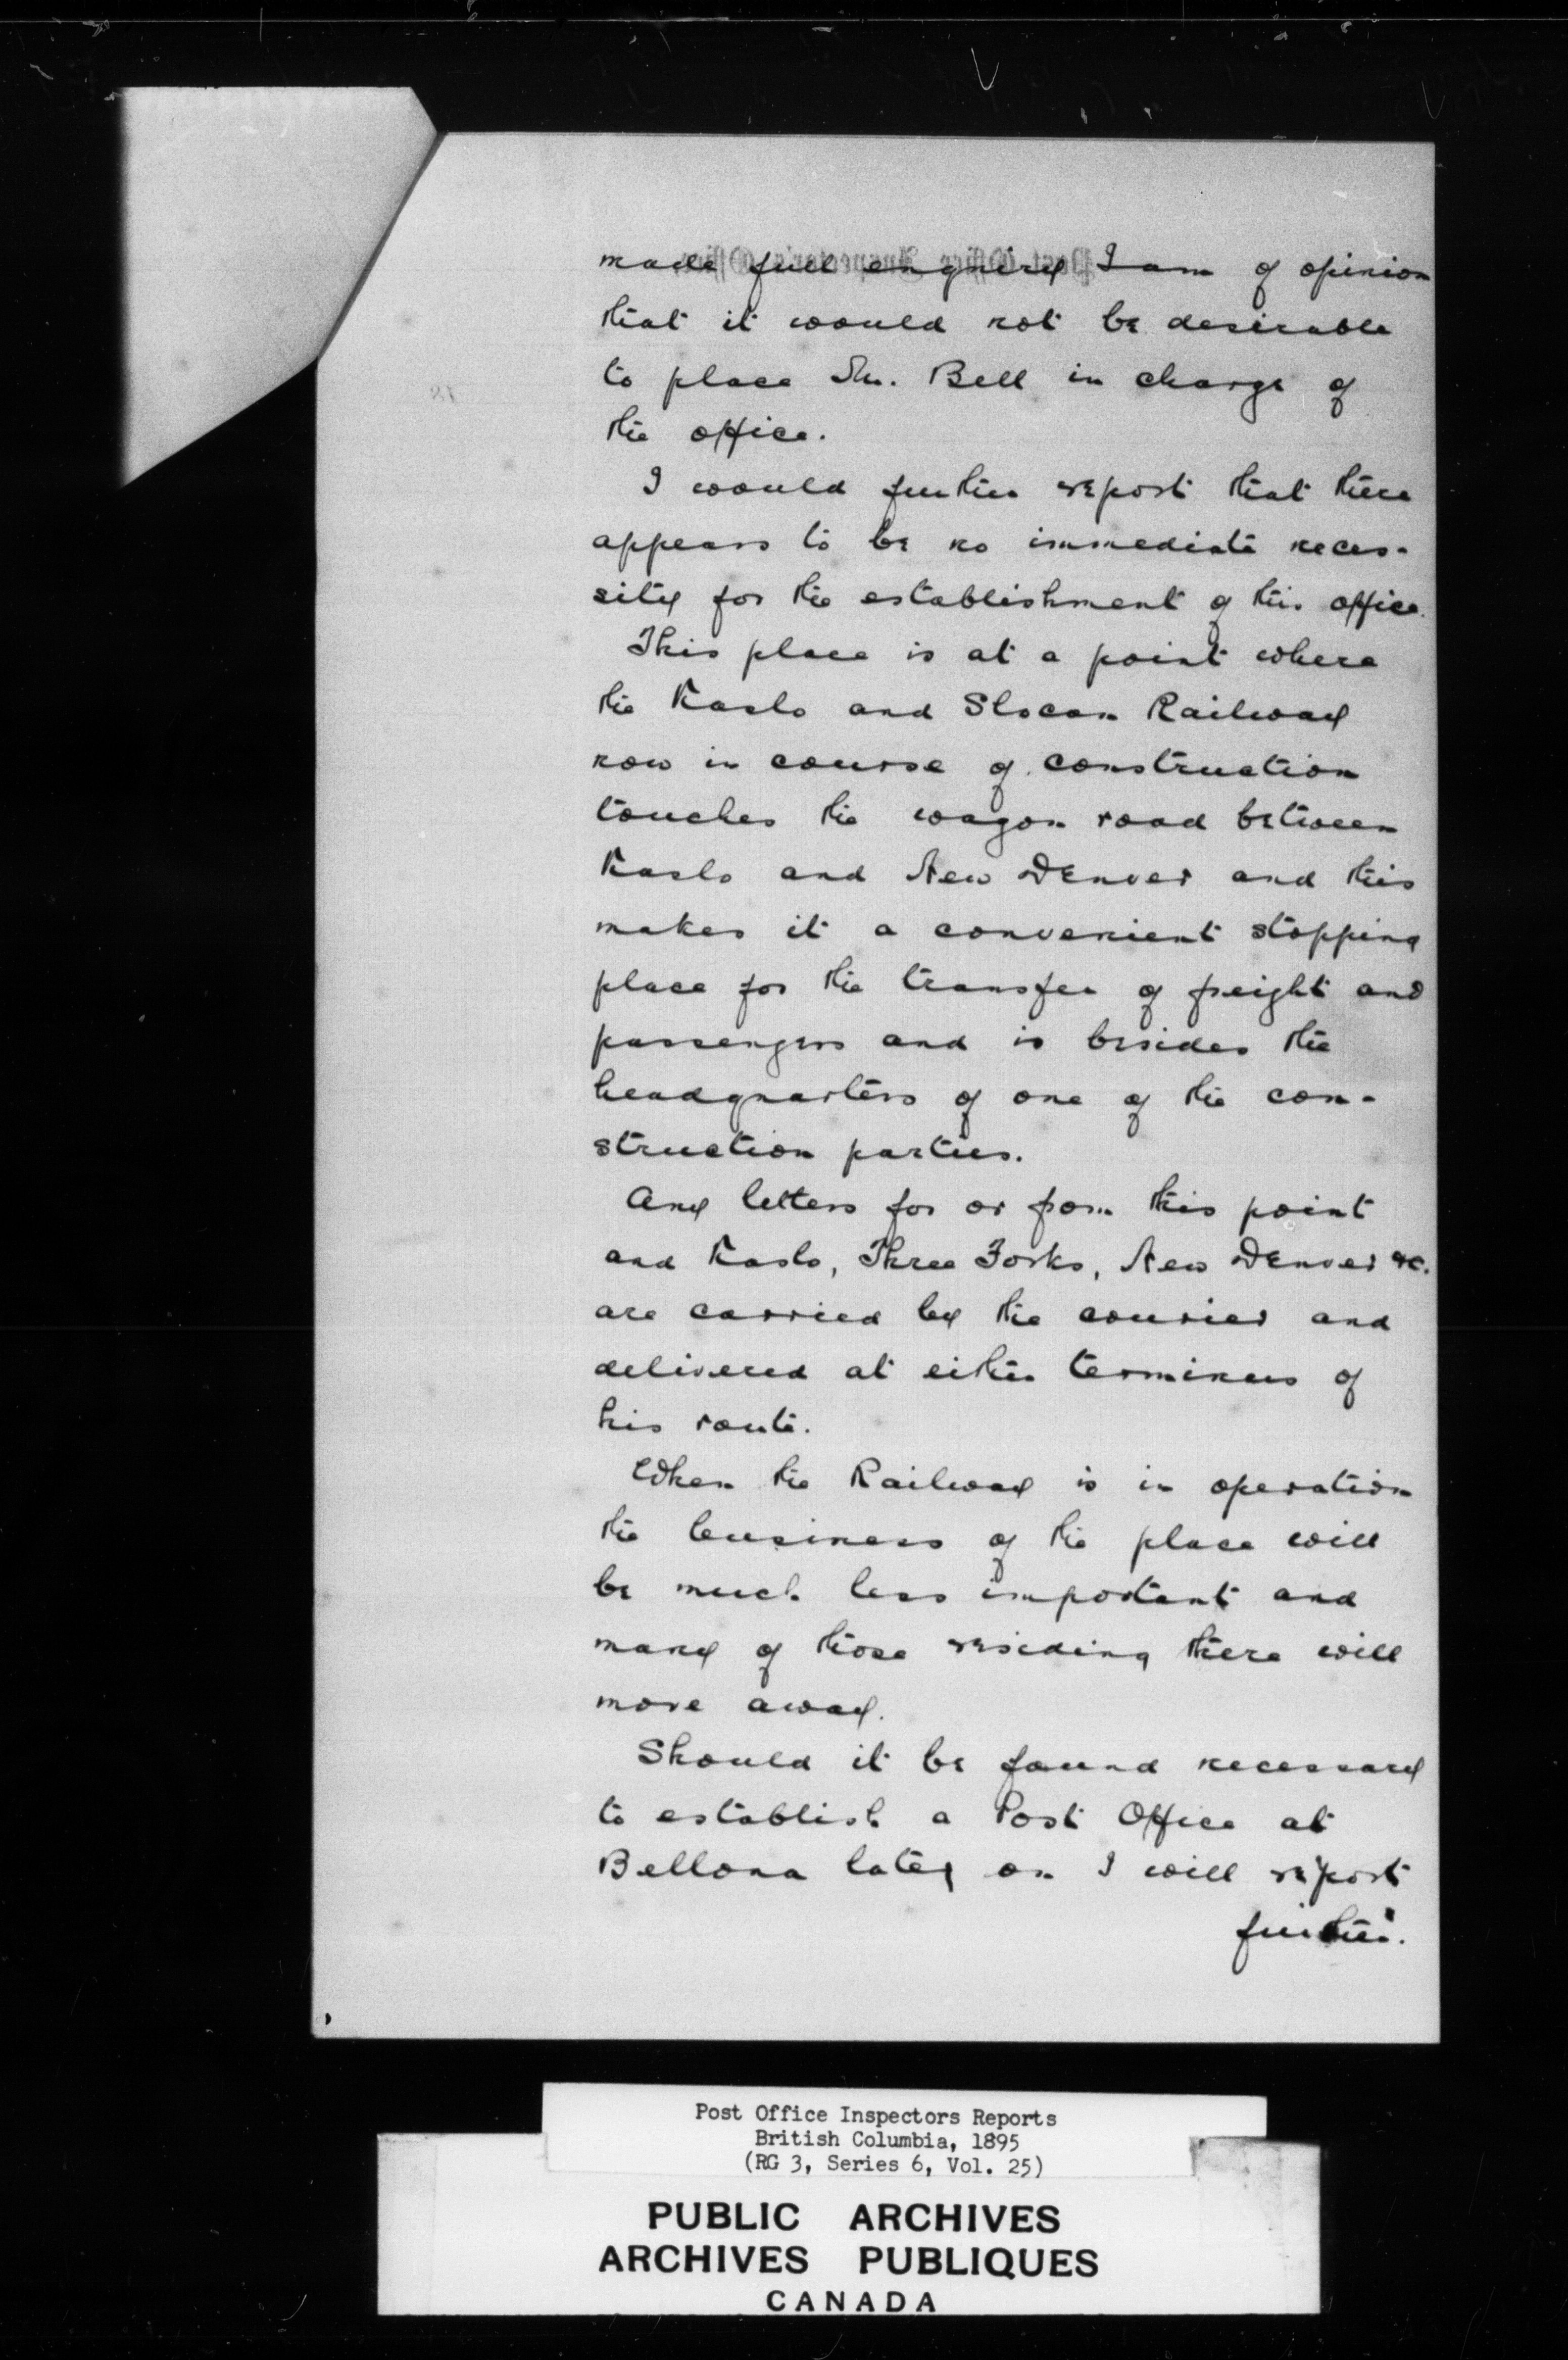 made full enquiry I am of opinion
that it would not be desirable
to place Mr. Bell in charge of
the office.
I would further report that there
appears to be no immediate neces-
sity for the establishment of this office.
This place is at a point where
the Kaslo and Slocan Railway
now in course of construction
touches the wagon road between
Kaslo and New Denver and this
makes it a convenient stopping
place for the transfer of freight and
passengers and is besides the
headquarters of one of the con-
struction parties.
Any letters for or from this point
and Kaslo, Three Forks, New Denver &c.
are carried by the courier and
delivered at either terminus of
his route.
When the Railway is in operation
the business of the place will
be much less important and
many of those residing there will
move away.
Should it be found necessary
to establish a Post Office at
Bellona later on I will report
further.
Post Office Inspectors Reports
British Columbia, 1895
(RG 3, Series 6, Vol. 25)
PUBLIC ARCHIVES
ARCHIVES PUBLIQUES
CANADA